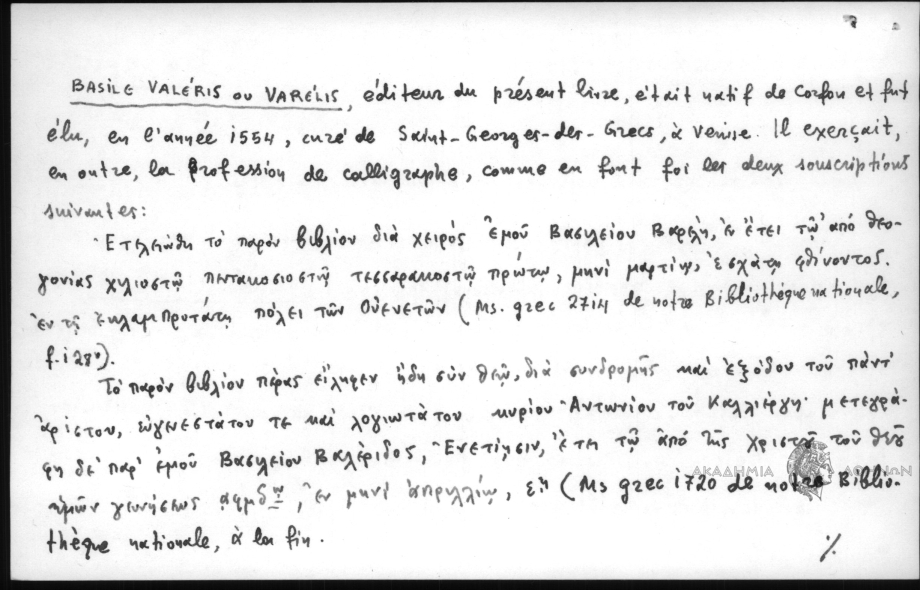 BASILE VALÉRIS ou VARÉLIS, éditeur du présent livre, était natif de Corfou et fut
élu, en l'année 1554, curé de Saint-Georges-des-Grecs, à Venise. Il exerçait,
en outre, la profession de calligraphe, comme en font foi les deux souscriptions
suivantes:
Ἐτελειώθη τὸ παρόν βιβλίον διά χειρός ἐμοῦ Βασιλείου Βαρέλη, ἐν ἔτει τῷ ἀπό θεο-
γονίας χιλιοστῷ πεντακοσιοστῷ τεσσαρακοστῷ πρώτῳ, μηνί μαρτίῳ, ἐσχάτῃ φθίνοντος.
ἐν τῇ ἐκλαμπροτάτῃ πόλει τῶν Οὐενετῶν (Ms. grec 2714 de notre Bibliothèque nationale,
f. 128v).
Τό παρόν βιβλίον πέρας εἴληφεν ἤδη σύν θεῷ, διά συνδρομῆς καί ἐξόδου τοῦ πάντ'
ἀρίστου, εὐγενεστάτου τε καί λογιωτάτου κυρίου Ἀντωνίου τοῦ Καλλιέργη· μετεγρά-
φη δέ παρ' ἐμοῦ Βασιλείου Βαλέριδος, Ἐνετίησιν, ἔτει τῷ ἀπό τῆς χριστοῦ τοῦ θεοῦ
ἡμῶν γεννήσεως αφμδῳ, ἐν μηνί ἀπριλλίῳ, εῃ (Ms grec 1720 de notre Biblio-
thèque nationale, à la fin.
ΑΚΑΔΗΜΙΑ ΑΘΗΝΩΝ
·/.